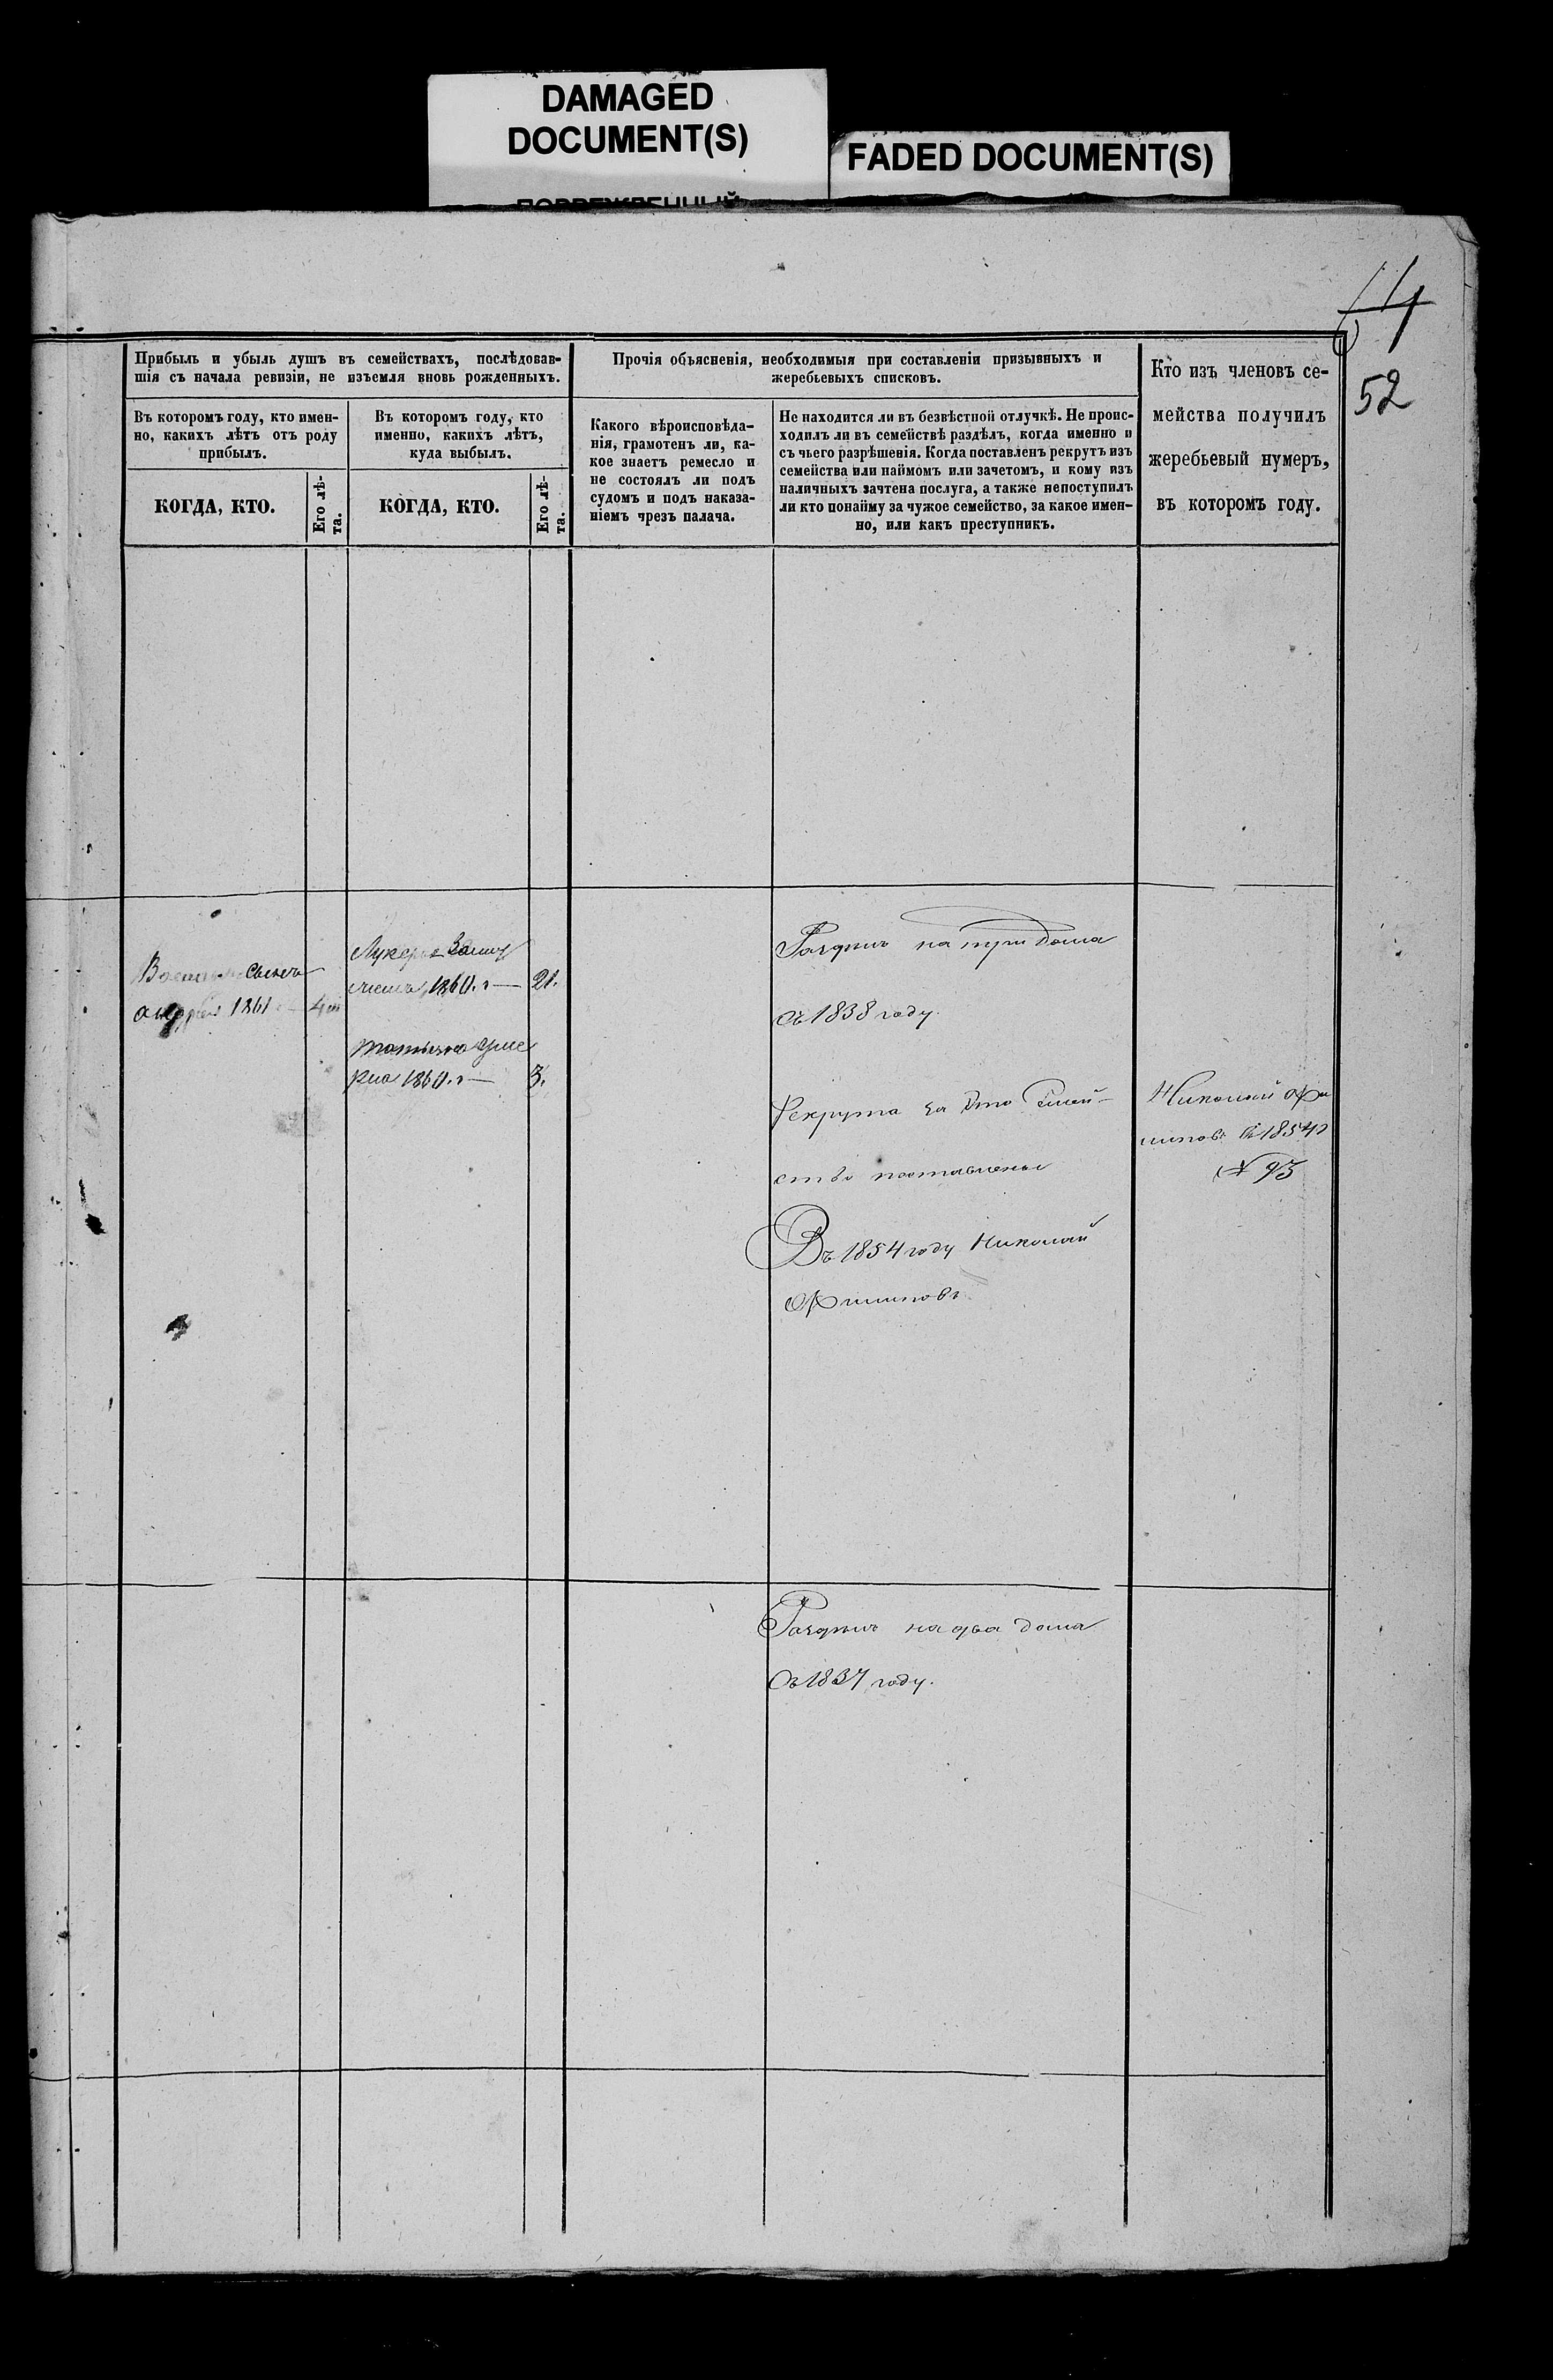 DAMAGED
DOCUMENT(S)
FADED DOCUMENT(S)
52
Прибыль и убыль душъ въ семействахъ, послѣдовав-
шія съ начала ревизіи, не изъемля вновь рожденныхъ.
Прочія объясненія, необходимыя при составленіи призывныхъ и
жеребьевыхъ списковъ.
Кто изъ членовъ се-
мейства получилъ
жеребьевый нумеръ,
въ которомъ году.
Въ которомъ году, кто имен-
но, какихъ лѣтъ отъ роду
прибылъ.
Въ которомъ году, кто
именно, какихъ лѣтъ,
куда выбылъ.
Какого вѣроисповѣда-
нія, грамотенъ ли, ка-
кое знаетъ ремесло и
не состоялъ ли подъ
судомъ и подъ наказа-
ніемъ чрезъ палача.
Не находится ли въ безвѣстной отлучкѣ. Не проис-
ходилъ ли въ семействѣ раздѣлъ, когда именно и
съ чьего разрѣшенія. Когда поставленъ рекрутъ изъ
семейства или наймомъ или зачетомъ, и кому изъ
наличныхъ зачтена послуга, а также непоступилъ
ли кто понайму за чужое семейство, за какое имен-
но, или какъ преступникъ.
КОГДА, КТО.
Его лѣ-
та.
КОГДА, КТО.
Его лѣ-
та.
1861
Лукерья Заму
жемъ 1860. г — 21.
Татьяна уме
рла 1860. г — 3.
Раздѣлъ на три дома
Съ 1838 году.
Рекрута за это Семей-
ство поставлены
Въ 1854 году Николай
Филиповъ
Николай Фи
липовъ въ 1854 г
№ 93
Раздѣлъ на два дома
Съ 1837 году.